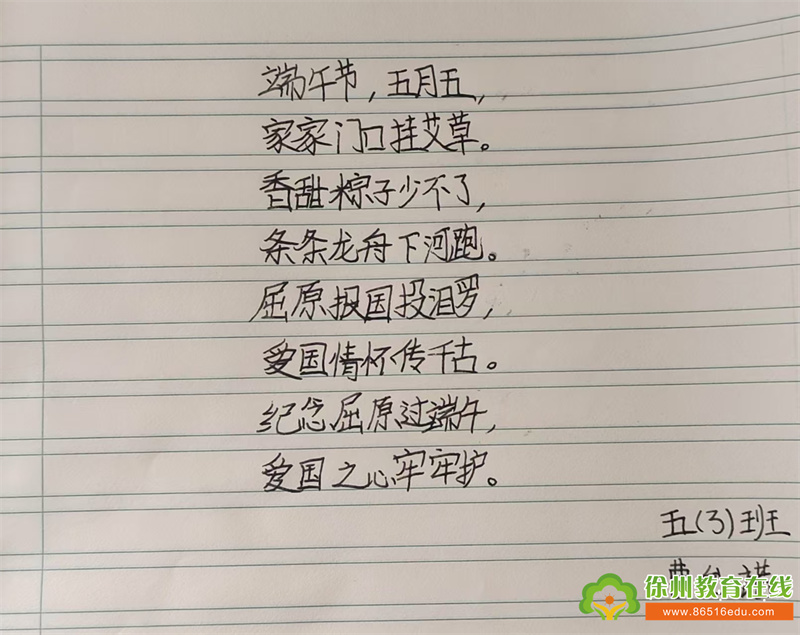 端午节，五月五，
家家门口挂艾草。
香甜粽子少不了，
条条龙舟下河跑。
屈原报国投汨罗，
爱国情怀传千古。
纪念屈原过端午，
爱国之心牢牢护。
五(3)班
徐州教育在线
www.86516edu.com